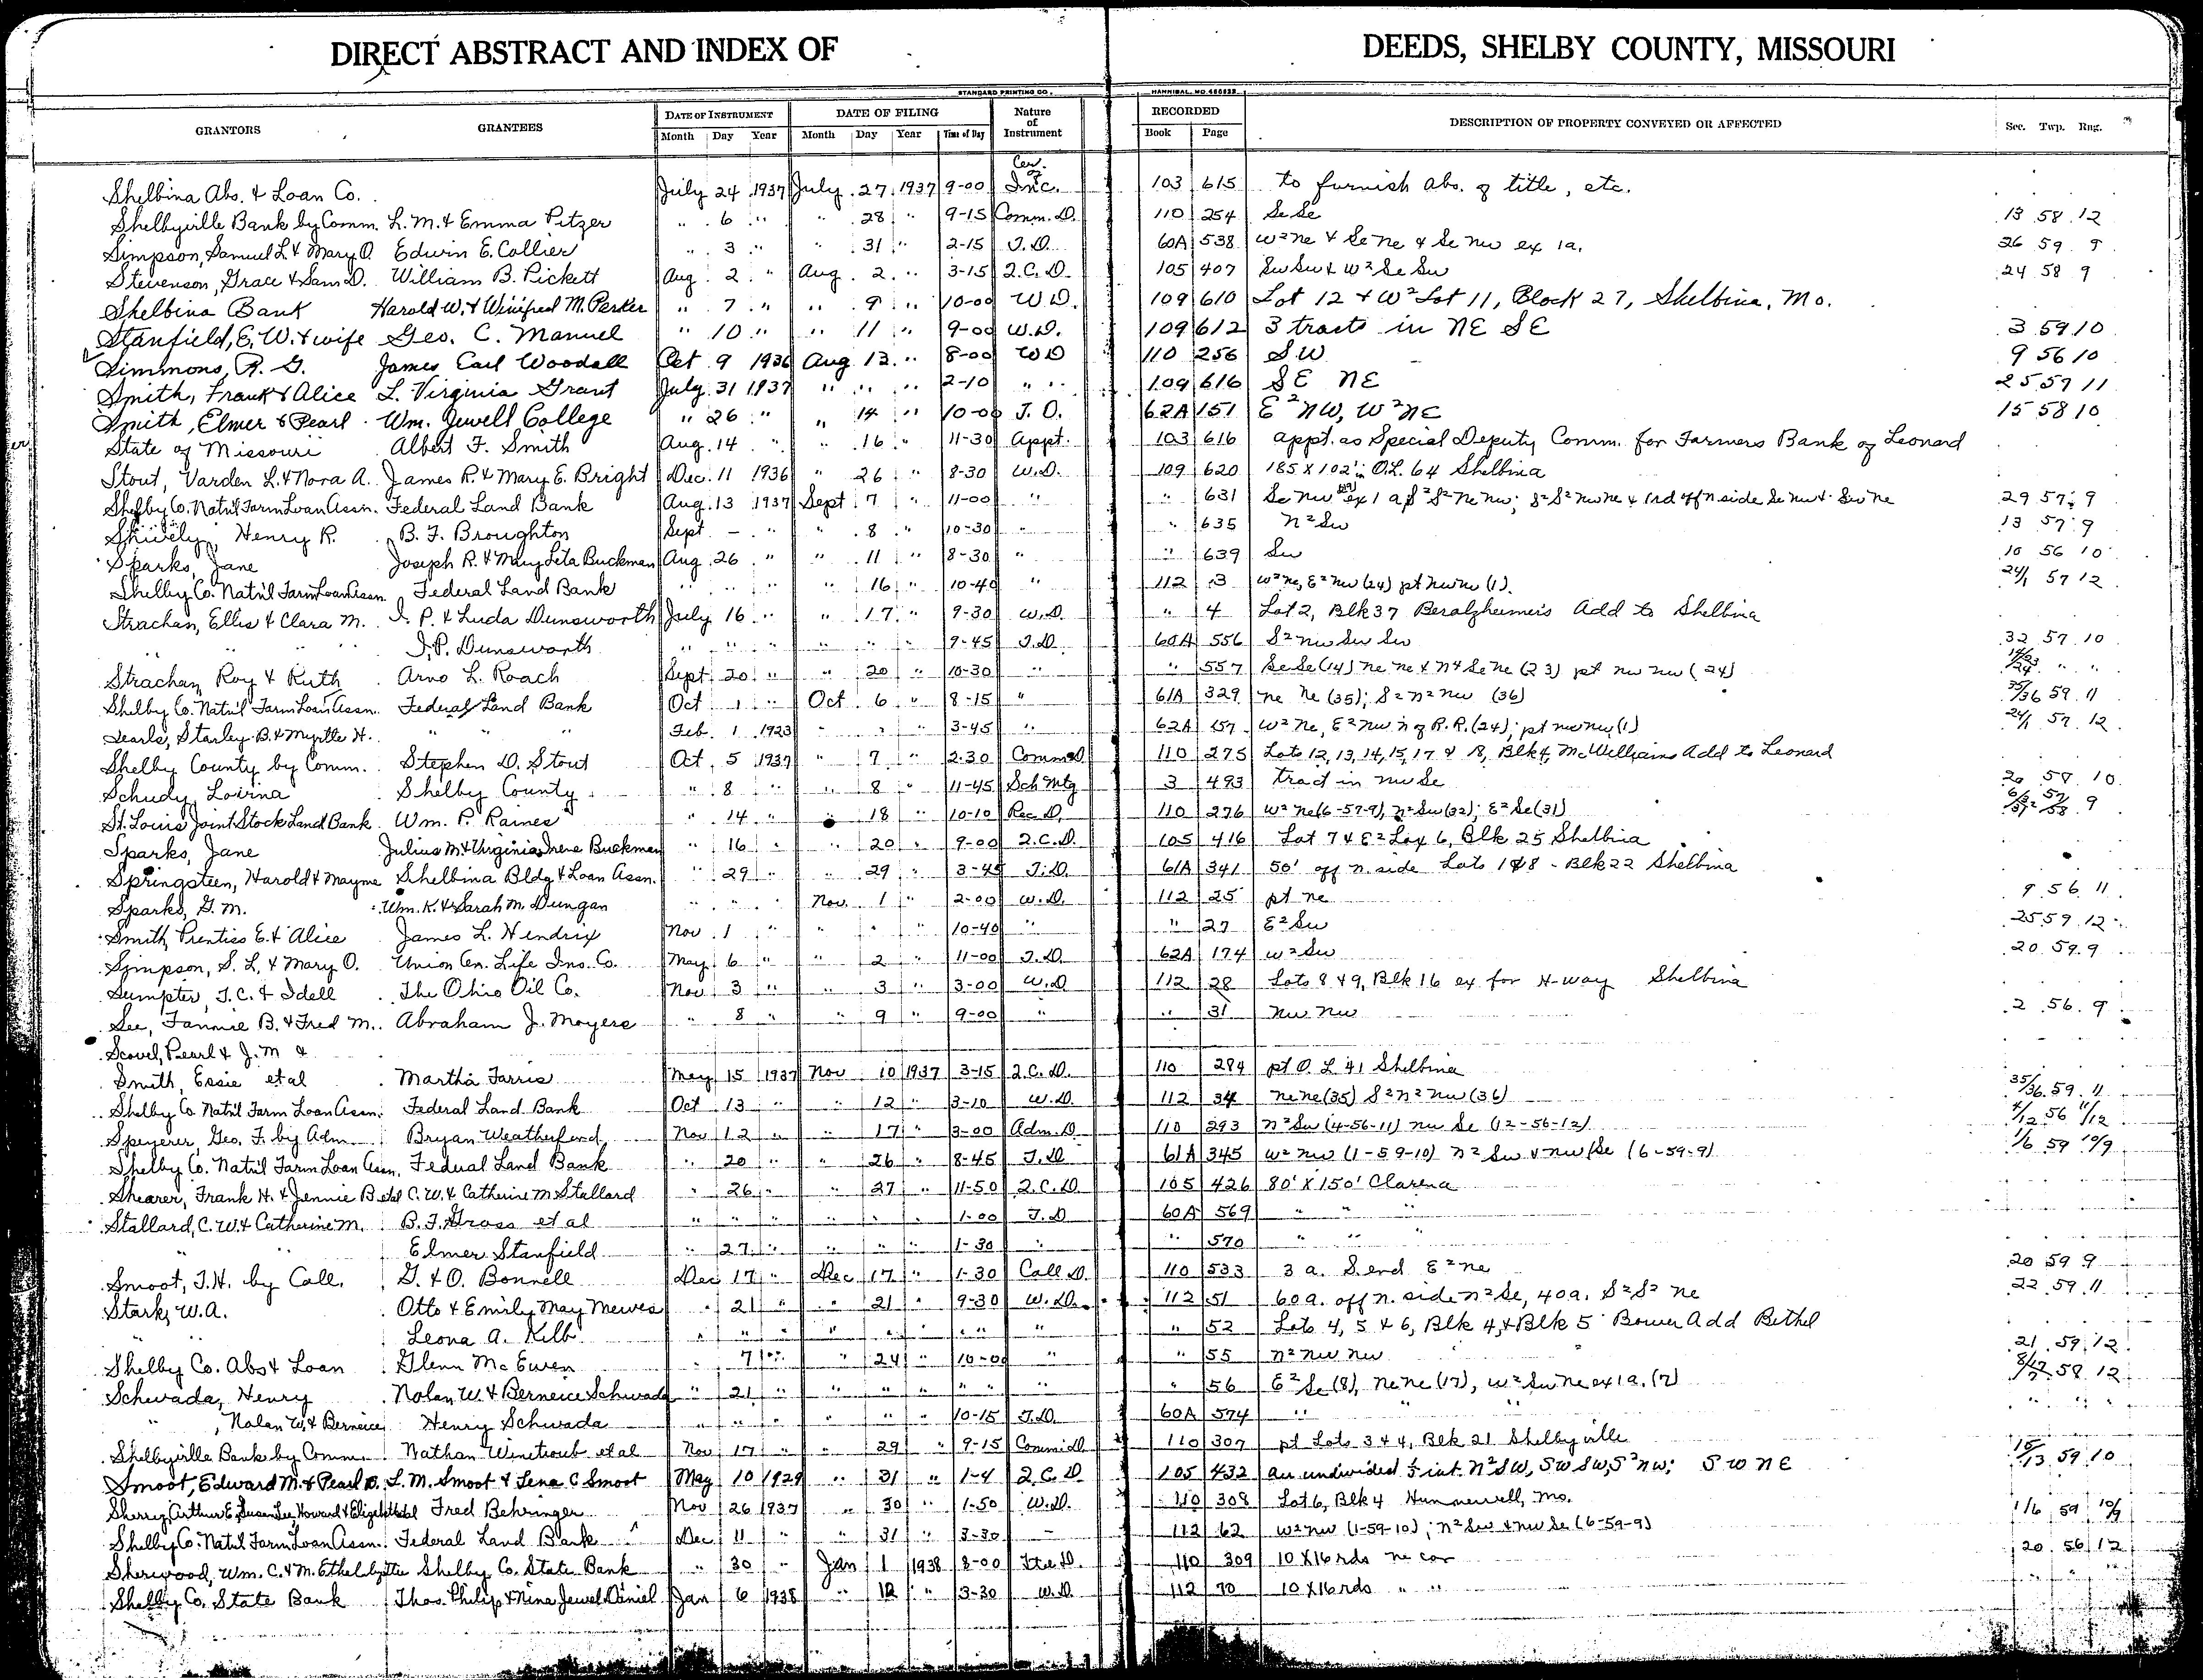 DIRECT ABSTRACT AND INDEX OF DEEDS, SHELBY COUNTY, MISSOURI
STANDARD PRINTING CO. HANNIBAL. NO
GRANTORS GRANTEES DATE OF INSTRUMENT DATE OF FILING Nature of Instrument RECORDED DESCRIPTION OF PROPERTY CONVEYED OR AFFECTED Sec. Twp. Rng.
Month Day Year Month Day Year Time of Day Book Page
Shelbina Abs. & Loan Co. July 24 1937 July 27 1937 9-00 Cer. of Inc. 103 615 to furnish abs. of title, etc.
Shelbyville Bank by Comm. L. M. & Emma Pitzer " 6 " " 28 " 9-15 Comm. D. 110 254 Se Se 13 58 12
Simpson, Samuel L. & Mary O. Edwin E. Collier " 3 " " 31 " 2-15 T.D. 60A 538 W² ne & Se ne & Se nw ex 1a. 26 59 9
Stevenson, Grace & Sam D. William B. Pickett Aug. 2 " Aug. 2 " 3-15 Q.C.D. 105 407 Sw Sw & W² Se Sw 24 58 9
Shelbina Bank Harold W. & Winifred M. Parker " 7 " " 9 " 10-00 W.D. 109 610 Lot 12 & W² Lot 11, Block 27, Shelbina, Mo.
Stanfield, E. W. & wife Geo. C. Manuel " 10 " " 11 " 9-00 W.D. 109 612 3 tracts in NE SE 3 59 10
Simmons, R. G. James Earl Woodall Oct 9 1936 Aug 13 " 8-00 WD 110 256 SW 9 56 10
Smith, Frank & Alice L. Virginia Grant July 31 1937 " " " 2-10 " " 109 616 SE NE 25 57 11
Smith, Elmer & Pearl Wm. Jewell College " 26 " " 14 " 10-00 T.D. 62A 151 E² NW, W² NE 15 58 10
State of Missouri Albert F. Smith Aug. 14 " " 16 " 11-30 Appt. 103 616 appt. as Special Deputy Comm. for Farmers Bank of Leonard
Stout, Varden L. & Nora A. James R. & Mary E. Bright Dec. 11 1936 " 26 " 8-30 W.D. 109 620 185 X 102' in O.L. 64 Shelbina
Shelby Co. Nat'l Farm Loan Assn. Federal Land Bank Aug. 13 1937 Sept 7 " 11-00 " " 631 Se nw ex 1 a; S² S² ne nw; S² S² nw ne & 1 rd off n side Se nw & Sw ne 29 57 9
Shively, Henry R. B. F. Broughton Sept - " " 8 " 10-30 " " 635 n² Sw 13 57 9
Sparks, Jane Joseph R. & Mary Leta Buckman Aug 26 " " 11 " 8-30 " " 639 Sw 10 56 10
Shelby Co. Nat'l Farm Loan Assn. Federal Land Bank " " " " 16 " 10-40 " 112 3 W² ne, E² nw (24) pt nw nw (1). 24/1 57 12
Strachan, Ellis & Clara M. J. P. & Luda Dunsworth July 16 " " 17 " 9-30 W.D. " 4 Lot 2, Blk 37 Beralzheimer's Add to Shelbina
" " " J. P. Dunsworth " " " " " " 9-45 T.D. 60A 556 S² nw Sw Sw 32 57 10
Strachan, Roy & Ruth Arno L. Roach Sept 20 " " 20 " 10-30 " " 557 Se Se (14) ne ne & n½ Se ne (23) pt nw nw (24) 14/23/24 " "
Shelby Co. Nat'l Farm Loan Assn. Federal Land Bank Oct 1 " Oct 6 " 8-15 " 61A 329 ne ne (35); S² n² nw (36) 35/36 59 11
Searls, Starley B. & Myrtle H. " " " Feb. 1 1923 " " " 3-45 " 62A 157 W² ne, E² nw n of R.R. (24); pt nw nw (1) 24/1 57 12
Shelby County by Comm. Stephen D. Stout Oct 5 1937 " 7 " 2-30 Comm D 110 275 Lots 12, 13, 14, 15, 17 & 18, Blk 4, McWilliams Add to Leonard
Schudy, Lovina Shelby County " 8 " " 8 " 11-45 Sch Mtg 3 493 tract in nw Se 20 58 10
St. Louis Joint Stock Land Bank Wm. P. Rainer " 14 " " 18 " 10-10 Rec D. 110 276 W² ne (6-57-9), n² Sw (32); E² Se (31) 6/32/31 57/58 9
Sparks, Jane Julius M. & Virginia Irene Buckman " 16 " " 20 " 9-00 Q.C.D. 105 416 Lot 7 & E² Lot 6, Blk 25 Shelbina
Springsteen, Harold & Mayme Shelbina Bldg & Loan Assn. " 29 " " 29 " 3-45 T.D. 61A 341 50' off n. side Lots 1 & 8 - Blk 22 Shelbina
Sparks, G. M. Wm. K. & Sarah M. Dungan " " " Nov. 1 " 2-00 W.D. 112 25 pt ne 9 56 11
Smith, Prentiss E. & Alice James L. Hendrix Nov 1 " " " " 10-40 " " 27 E² Sw 25 59 12
Simpson, S. L. & Mary O. Union Cen. Life Ins. Co. May 6 " " 2 " 11-00 T.D. 62A 174 W² Sw 20 59 9
Sumpter, T. C. & Idell The Ohio Oil Co. Nov 3 " " 3 " 3-00 W.D 112 28 Lots 8 & 9, Blk 16 ex for H-way Shelbina
See, Fannie B. & Fred M. Abraham J. Moyers " 8 " " 9 " 9-00 " " 31 nw nw 2 56 9
Scovel, Pearl & J. M &
Smith, Essie et al Martha Farris May 15 1937 Nov 10 1937 3-15 Q.C.D. 110 284 pt O. L 41 Shelbina
Shelby Co Nat'l Farm Loan Assn. Federal Land Bank Oct 13 " " 12 " 3-10 W.D. 112 34 ne ne (35) S² n² nw (36) 35/36 59 11
Speyerer, Geo. F. by Adm Bryan Weatherford Nov 12 " " 17 " 3-00 Adm. D 110 293 n² Sw (4-56-11) nw Se (12-56-12) 4/12 56 11/12
Shelby Co. Nat'l Farm Loan Assn. Federal Land Bank " 20 " " 26 " 8-45 T.D 61A 345 W² nw (1-59-10) n² Sw & nw Se (6-59-9) 1/6 59 10/9
Shearer, Frank H. & Jennie B et al C. W. & Catherine M Stallard " 26 " " 27 " 11-50 Q.C.D. 105 426 80' X 150' Clarena
Stallard, C. W. & Catherine M. B. F. Gross et al " " " " " " 1-00 T.D 60A 569 " " "
" " Elmer Stanfield " 27 " " " " 1-30 " " 570 " " "
Smoot, T. H. by Coll. G. & O. Bonnell Dec 17 " Dec 17 " 1-30 Coll D. 110 533 3 a. S. end E² ne 20 59 9
Stark, W. A. Otto & Emily May Mewes " 21 " " 21 " 9-30 W.D. 112 51 60 a. off n. side n² Se, 40 a. S² S² ne 22 59 11
" " Leona A. Kilb " " " " " " " " " " 52 Lots 4, 5 & 6, Blk 4, & Blk 5 Bower Add Bethel
Shelby Co. Abs & Loan Glenn McEwen " 7 " " 24 " 10-00 " " 55 n² nw nw 21 59 12
Schwada, Henry Nolan W. & Berneice Schwada " 21 " " " " " " " " 56 E² Se (8), ne ne (17), W² Sw ne ex 1a. (7) 8/17/7 58 12
" , Nolan W. & Berneice Henry Schwada " " " " " " 10-15 T.D. 60A 574 " " " " " "
Shelbyville Bank by Comm. Nathan Winetroub et al Nov 17 " " 29 " 9-15 Comm D 110 307 pt Lots 3 & 4, Blk 21 Shelbyville
Smoot, Edward M. & Pearl B. L. M. Smoot & Lena C Smoot May 10 1929 " 31 " 1-4 Q.C.D. 105 432 an undivided int. N² SW, SW SW, S² NW; SW NE /13 59 10
Sherry, Arthur E, Susan Lee, Howard & Elizabeth et al Fred Behringer Nov 26 1937 " 30 " 1-50 W.D. 110 308 Lot 6, Blk 4 Hunnewell, Mo.
Shelby Co. Nat'l Farm Loan Assn. Federal Land Bank Dec 11 " " 31 " 3-30 - 112 62 W² nw (1-59-10); n² Sw & nw Se (6-59-9) 1/6 59 10/9
Sherwood, Wm. C. & M. Ethel by Ttee Shelby Co. State Bank " 30 " Jan 1 1938 8-00 Ttee D. 110 309 10 X 16 rds ne cor 20 56 12
Shelby Co. State Bank Thos. Philip & Nina Jewel Daniel Jan 6 1938 " 12 " 3-30 W.D. 112 70 10 X 16 rds " " " " "